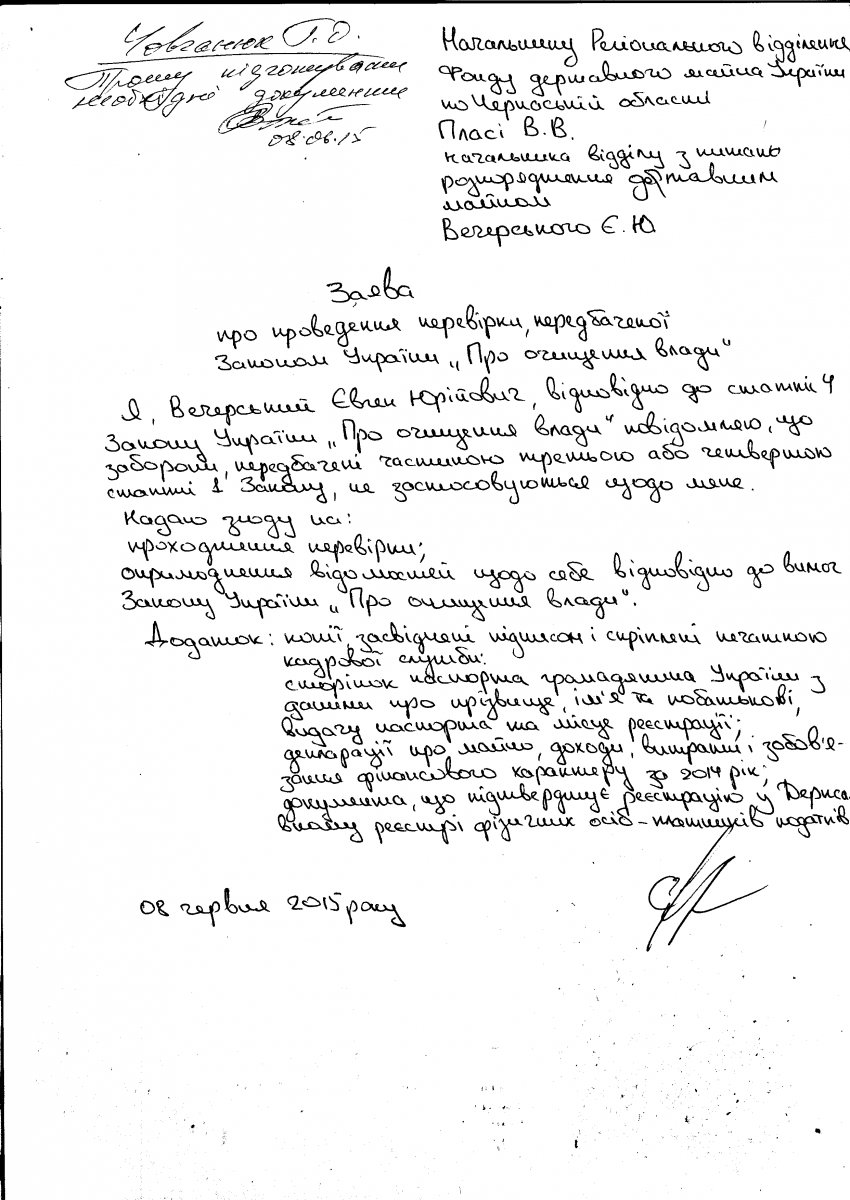 Човганюк Г.О.
Прошу підготувати
необхідні документи
08.06.15
Начальнику Регіонального відділення
Фонду державного майна України
по Черкаській області
Пласі В.В.
начальника відділу з питань
розпорядження державним
майном
Вечерського Є.Ю
Заява
про проведення перевірки, передбаченої
Законом України „Про очищення влади"
Я, Вечерський Євген Юрійович, відповідно до статті 4
Закону України „Про очищення влади" повідомляю, що
заборони, передбачені частиною третьою або четвертою
статті 1 Закону, не застосовуються щодо мене.
Надаю згоду на:
проходження перевірки;
оприлюднення відомостей щодо себе відповідно до вимог
Закону України „Про очищення влади".
Додаток: копії, засвідчені підписом і скріплені печаткою
кадрової служби:
сторінок паспорта громадянина України з
даними про прізвище, ім'я та по батькові,
видачу паспорта та місце реєстрації;
декларації про майно, доходи, витрати і зобов'я-
зання фінансового характеру за 2014 рік;
документа, що підтверджує реєстрацію у Держа-
вному реєстрі фізичних осіб – платників податків
08 червня 2015 року